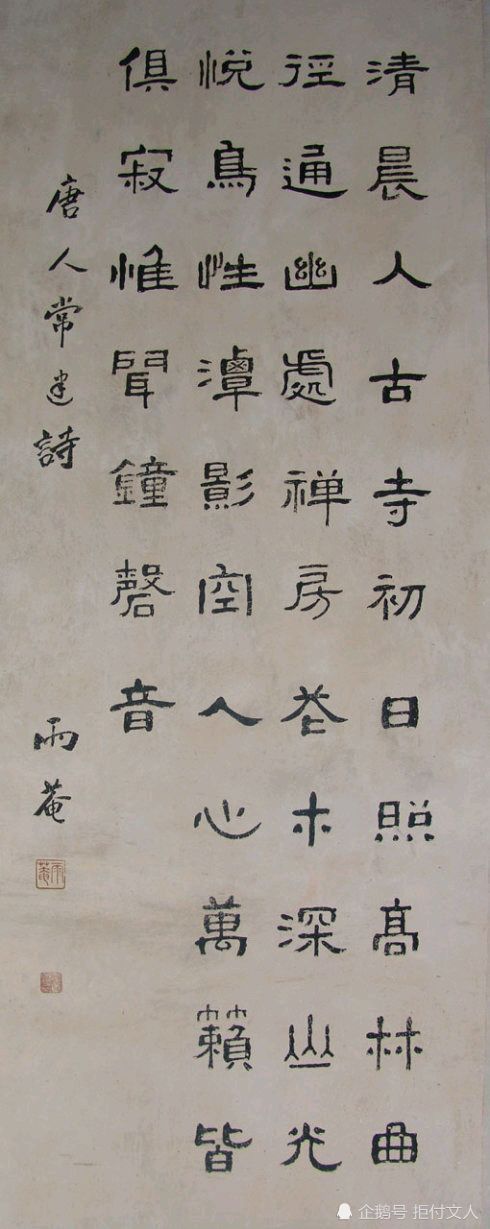 清晨入古寺初日照髙林曲
徑通幽處禅房花木深山光
悅鳥性潭影空人心萬籟皆
俱寂惟聞鐘磬音
唐人常建詩
雨菴
企鹅号 拒付文人